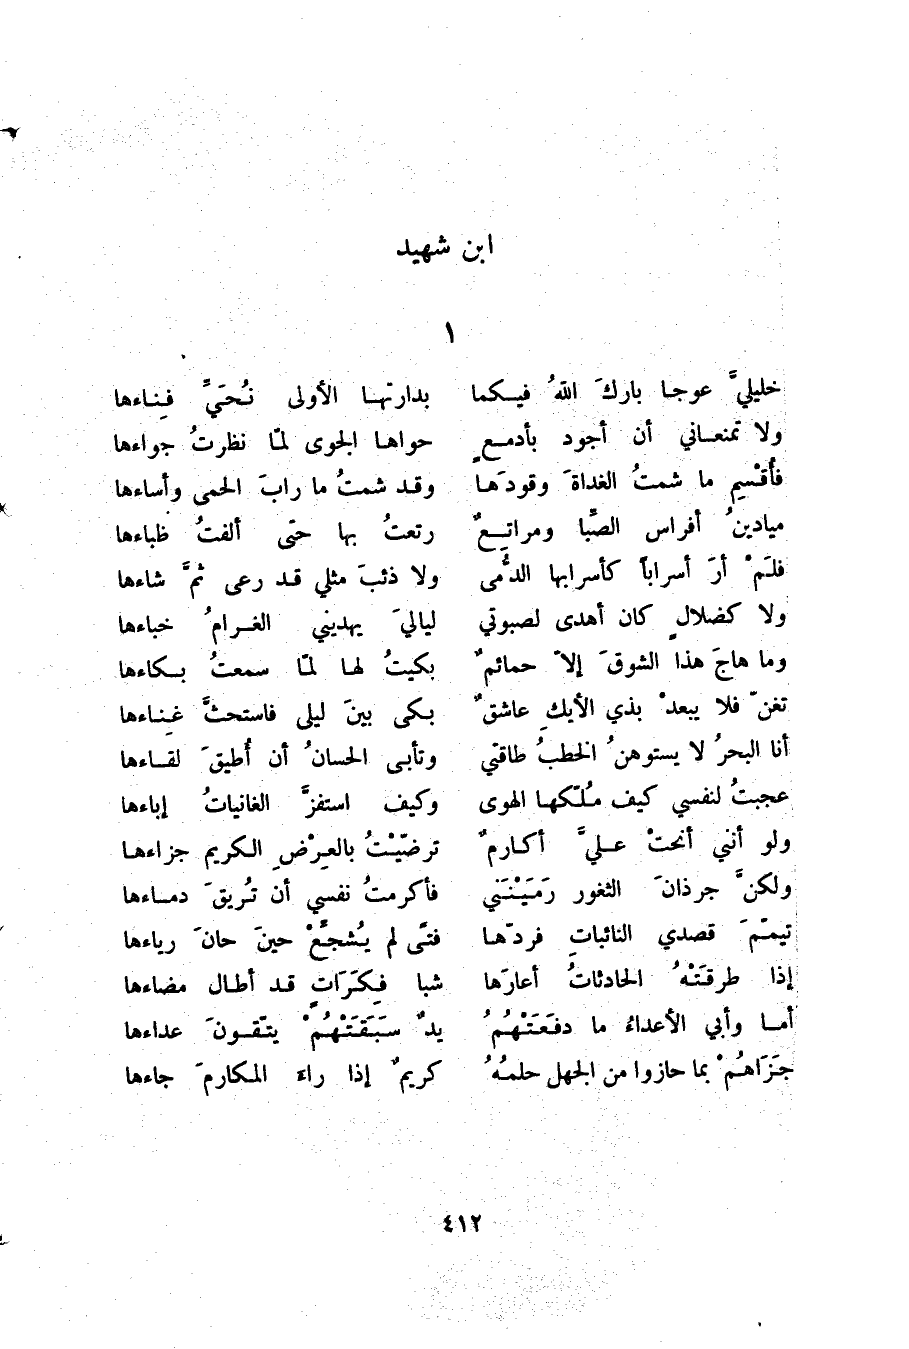 ابن شهيد
١
خليليَّ عوجا باركَ اللهُ فيكما بدارتها الأولى نُحَيِّ فِناءها
ولا تمنعاني أن أجود بأدمعٍ حواها الجوى لمّا نظرتُ جواءها
فأُقْسِم ما شمتُ الغداةَ وقودَها وقد شمتُ ما رابَ الحمى وأساءها
ميادينُ أفراس الصِّبا ومراتِعٌ رتعتُ بها حتّى ألفتُ ظباءها
فلَمْ أرَ أسراباً كأسرابها الدُّمى ولا ذئبَ مثلي قد رعى ثَمَّ شاءها
ولا كضلالٍ كان أهدى لصبوتي لياليَ يهديني الغرامُ خباءها
وما هاجَ هذا الشوقَ إلاّ حمائمٌ بكيتُ لها لمّا سمعتُ بكاءها
تغنّ فلا يبعدْ بذي الأيكِ عاشقٌ بكى بينَ ليلى فاستحثَّ غِناءها
أنا البحرُ لا يستوهنُ الخطبُ طاقتي وتأبى الحسانُ أن أُطيقَ لقاءها
عجبتُ لنفسي كيف مُلّكها الهوى وكيف استفزَّ الغانياتُ إباءها
ولو أنني أنحتْ عليَّ أكارمٌ ترضّيْتُ بالعِرْضِ الكريم جزاءها
ولكنَّ جرذانَ الثغور رَمَيْنَني فأكرمتُ نفسي أن تُريقَ دماءها
تيمّمَ قصدي النائباتِ فردّها فتًى لم يُشجَّعْ حينَ حانَ رياءها
إذا طرقَتْهُ الحادثاتُ أعارَها شبا فِكَرَاتٍ قد أطال مضاءها
أما وأبي الأعداءُ ما دفَعَتْهُمُ يدٌ سَبَقَتْهُمْ يتّقونَ عداءها
جزَاهُمْ بما حازوا من الجهل حلمُهُ كريمٌ إذا راءَ المكارمَ جاءها
٤١٢